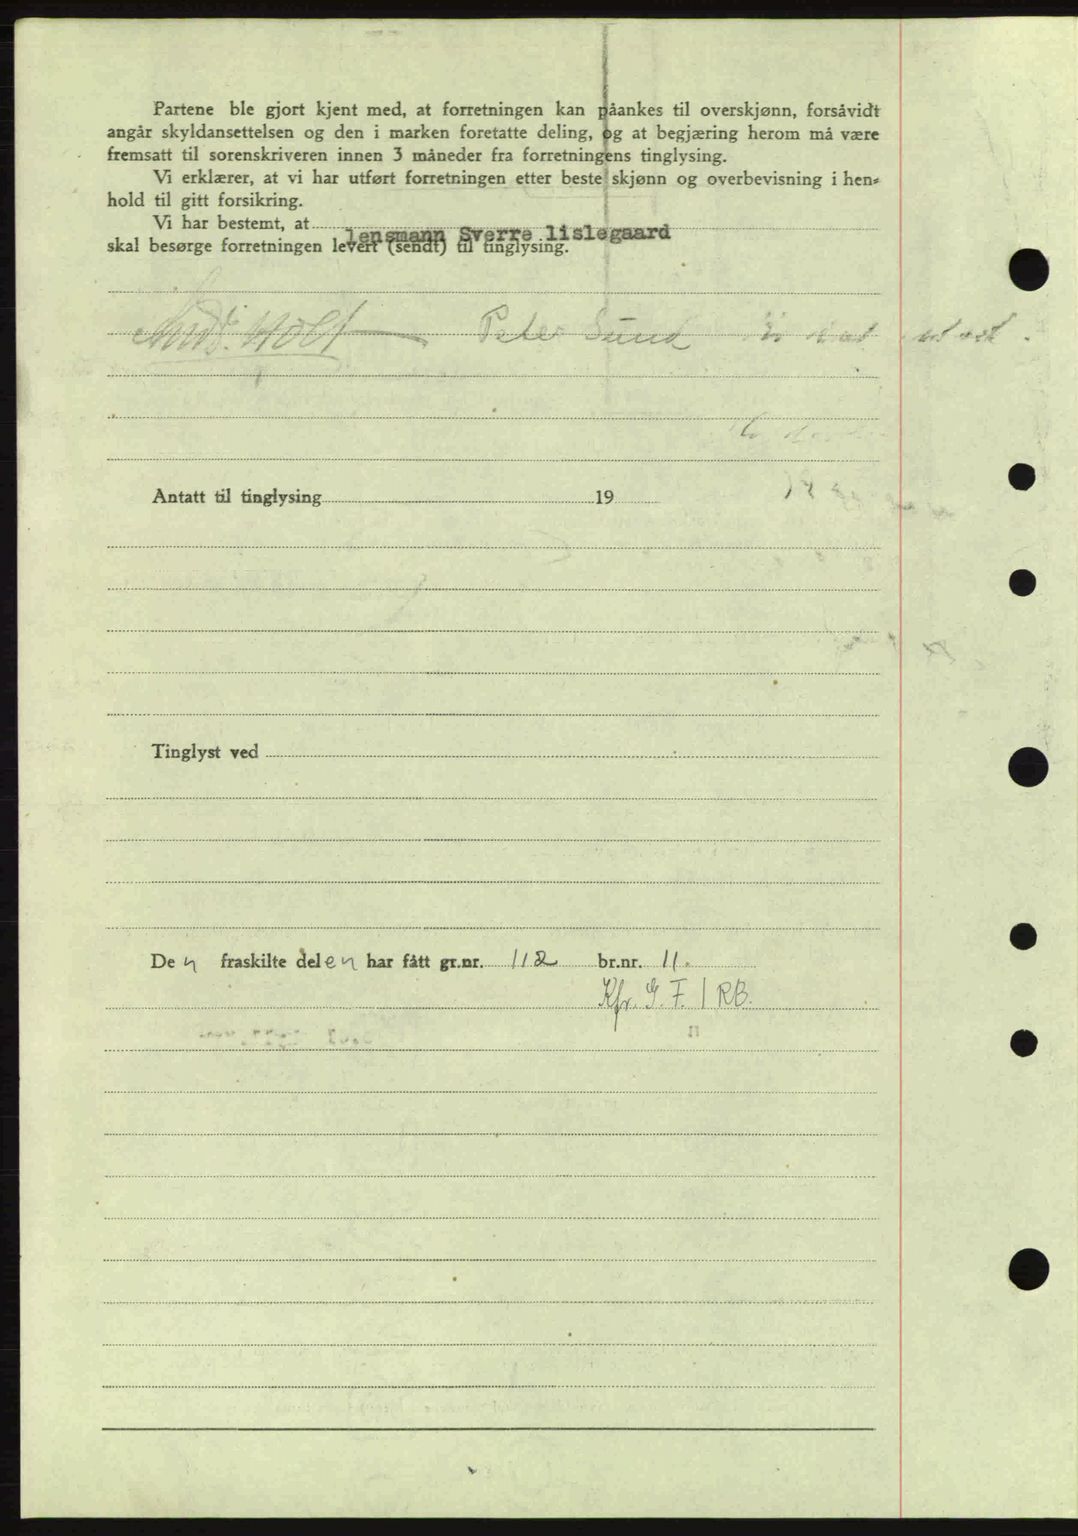 Partene ble gjort kjent med, at forretningen kan påankes til overskjønn, forsåvidt
angår skyldansettelsen og den i marken foretatte deling, og at begjæring herom må være
fremsatt til sorenskriveren innen 3 måneder fra forretningens tinglysing.
Vi erklærer, at vi har utført forretningen etter beste skjønn og overbevisning i hen-
hold til gitt forsikring.
Vi har bestemt, at lensmann Sverre lislegaard
skal besørge forretningen levert (sendt) til tinglysing.
Holt Peter Sund
Antatt til tinglysing 19
Tinglyst ved
De n fraskilte del en har fått gr.nr. 112 br.nr. 11.
Kfr. G. F. / RB.